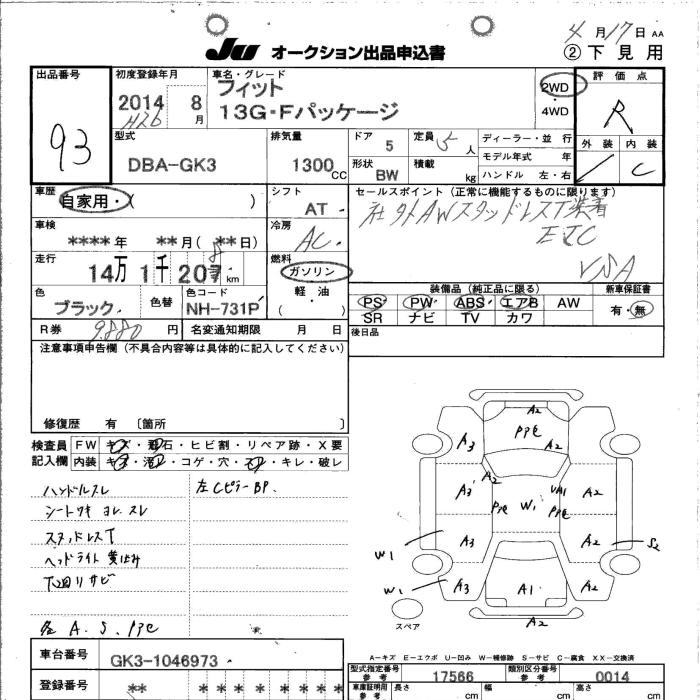 4月17日 AA
JU オークション出品申込書 ② 下見用
出品番号 93
初度登録年月 2014 8月 H26
車名・グレード フィット
13G・Fパッケージ
2WD
4WD
評価点 R
外装 内装 C
型式 DBA-GK3
排気量 1300 CC
ドア 5
定員 5人
形状 BW
積載 kg
ディーラー・並行
モデル年式 年
ハンドル 左・右
車歴 自家用・( )
シフト AT
セールスポイント(正常に機能するものに限ります)
社外AWスタッドレスT装着
ETC
VSA
車検 ****年 **月(**日)
冷房 AC
走行 14万1千207km
8
燃料 ガソリン
軽・油
( )
色 ブラック
色替
色コード NH-731P
装備品(純正品に限る)
PS PW ABS エアB AW
SR ナビ TV カワ
新車保証書
有・無
R券 9,880円
名変通知期限 月 日
後日品
注意事項申告欄(不具合内容等は具体的に記入してください)
修復歴 有 〔箇所 〕
検査員記入欄
FW キズ・飛石・ヒビ割・リペア跡・X要
内装 キズ・汚れ・コゲ・穴・スレ・キレ・破レ
ハンドルスレ
シートワキ ヨレ スレ
スタッドレスT
ヘッドライト黄ばみ
下廻りサビ
各 A. S. PPC
左Cピラー BP.
A2
PPC
A2
A3
A2
A3
A2
UA1
A2
PPC
W1
PPC
A3
A2
S2
W1
W1
A3
A1
A2
スペア
A2
車台番号 GK3-1046973
A−キズ E−エクボ U−凹み W−補修跡 S−サビ C−腐食 XX−交換済
型式指定番号 17566
類別区分番号 0014
登録番号 ** * * * * * * *
車庫証明用参考 長さ cm 幅 cm 高さ cm